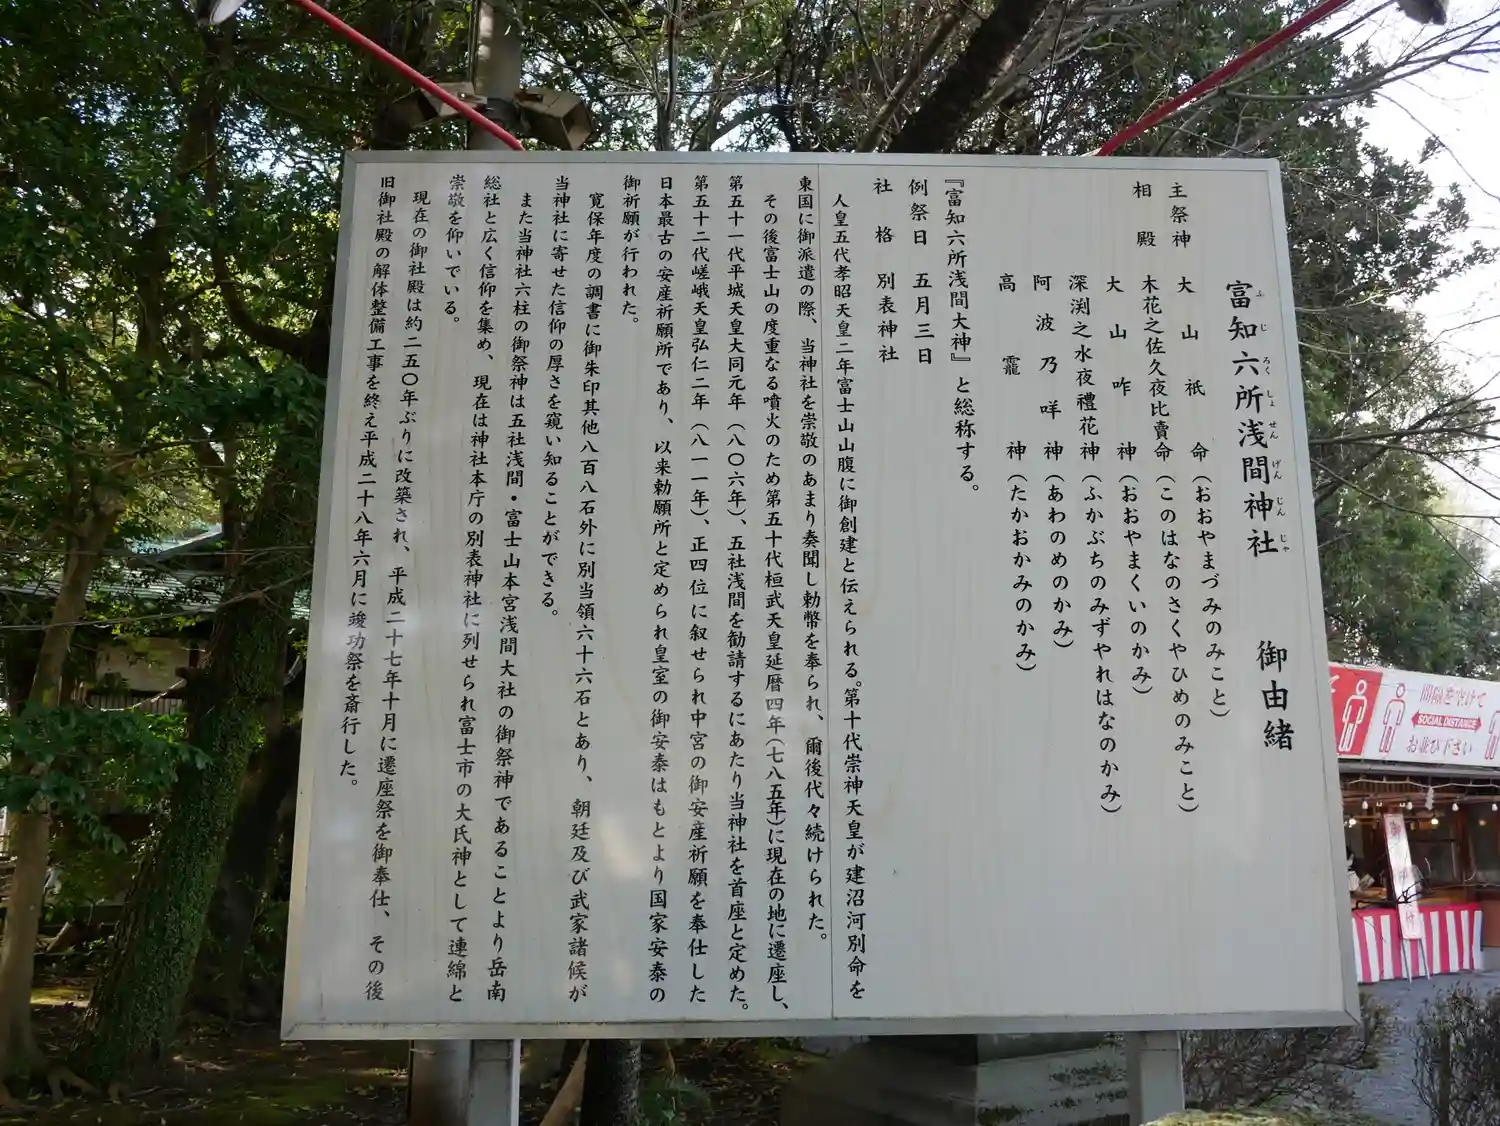 富知六所浅間神社　御由緒
ふじろくしょせんげんじんじゃ
主祭神　大山祇命（おおやまづみのみこと）
相殿　木花之佐久夜比賣命（このはなのさくやひめのみこと）
大山咋神（おおやまくいのかみ）
深渕之水夜禮花神（ふかぶちのみずやれはなのかみ）
阿波乃咩神（あわのめのかみ）
高龗神（たかおかみのかみ）
『富知六所浅間大神』と総称する。
例祭日　五月三日
社格　別表神社
人皇五代孝昭天皇二年富士山山腹に御創建と伝えられる。第十代崇神天皇が建沼河別命を
東国に御派遣の際、当神社を崇敬のあまり奏聞し勅幣を奉られ、爾後代々続けられた。
その後富士山の度重なる噴火のため第五十代桓武天皇延暦四年（七八五年）に現在の地に遷座し、
第五十一代平城天皇大同元年（八〇六年）、五社浅間を勧請するにあたり当神社を首座と定めた。
第五十二代嵯峨天皇弘仁二年（八一一年）、正四位に叙せられ中宮の御安産祈願を奉仕した
日本最古の安産祈願所であり、以来勅願所と定められ皇室の御安泰はもとより国家安泰の
御祈願が行われた。
寛保年度の調書に御朱印其他八百八石外に別当領六十六石とあり、朝廷及び武家諸候が
当神社に寄せた信仰の厚さを窺い知ることができる。
また当神社六柱の御祭神は五社浅間・富士山本宮浅間大社の御祭神であることより岳南
総社と広く信仰を集め、現在は神社本庁の別表神社に列せられ富士市の大氏神として連綿と
崇敬を仰いでいる。
現在の御社殿は約二五〇年ぶりに改築され、平成二十七年十月に遷座祭を御奉仕、その後
旧御社殿の解体整備工事を終え平成二十八年六月に竣功祭を斎行した。
間隔を空けて
SOCIAL DISTANCE
お並び下さい